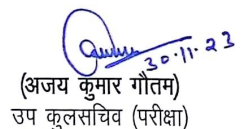 30.11.23
(अजय कुमार गौतम)
उप कुलसचिव (परीक्षा)